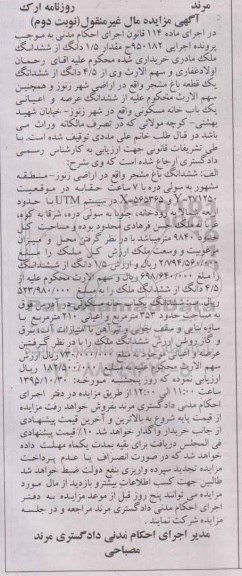 مرند روزنامه ارک
آگهی مزایده مال غیرمنقول(نوبت دوم)
در اجرای ماده ۱۱۴ قانون اجرای احکام مدنی به موجب
پرونده اجرایی ۹۵۰۱۸۲ج مقدار ۱/۵ دانگ از ششدانگ
ملک مادری خریداری شده محکوم علیه آقای رحمان
اولادغفاری و سهم الارث وی از ۴/۵ دانگ از ششدانگ
یک قطعه باغ مشجر واقع در اراضی شهر زنوز و همچنین
سهم الارث محکوم علیه از ششدانگ عرصه و اعیانی
یک باب خانه مسکونی واقع در شهر زنوز- خیابان شهید
بهشتی- کوچه مولائی که در تصرف مالکانه وراث می
باشد در قبال طلب خانم علی مددی توقیف شده است. با
طی تشریفات قانونی جهت ارزیابی به کارشناس رسمی
دادگستری ارجاع شده است که وی بشرح:
الف: ششدانگ باغ مشجر واقع در اراضی زنوز- منطقه
مشهور به سولی دره با ۷ ساعت حقابه در موقعیت
در سیستم UTM با حدود
اربعه شمالا به رودخانه، جنوبا به سولی دره، شرقا به کوه،
حسن فرهادی محدود بوده و مساحت کل
حدود ۹۸۴۰ مترمیباشد با در نظر گرفتن محل و میزان
مرغوبیت و وسعت ملک ارزش کل ملک را مبلغ
ریال و ارزش ۱/۵ دانگ از ششدانگ
را مبلغ ۶۹۸/۶۴۰/۰۰۰ ریال و سهم الارث محکوم علیه از
۴/۵ دانگ از ششدانگ ملک را به مبلغ ۵۲۳/۹۸۰/۰۰۰
ریال ب: ششدانگ یکباب خانه مسکونی واقع در زنوز فوق
به مساحت حدود ۳۵۳ مترمربع و اعیانی ۲۱۰ مترمربع با
سازه بنایی و سقف چوبی و تیرآهن با امتیازات آب، برق
و گاز روشن ارزش ششدانگ ملک را با در نظر گرفتن
عرصه و اعیانی موجود به مبلغ ۷۳۰/۰۰۰/۰۰۰ ریال ارزش
سهم الارث محکوم علیه را مبلغ ۱۸۲/۵۰۰/۰۰۰ ریال
ارزیابی نموده که روز پنجشنبه مورخه: ۱۳۹۵/۱۰/۳۰ از
ساعت ۱۱:۰۰ الی ۱۲:۰۰ از طریق مزایده در دفتر اجرای
احکام مدنی دادگستری مرند بفروش خواهد رفت مزایده
از قیمت پایه شروع به بالاترین و آخرین قیمت پیشنهادی
از جانب خریدار واگذار خواهد شد ۱۰٪ قیمت پیشنهادی
فی المجلس دریافت برای بقیه بمدت یکماه مهلت داده
خواهد شد که در صورت انصراف یا عدم پرداخت
مزایده تجدید سپرده واریزی بنفع دولت ضبط خواهد شد
طالبین جهت کسب اطلاعات بیشتر و بازدید از مال مورد
مزایده می توانند پنج روز قبل از موعد مزایده به دفتر
اجرای احکام مدنی دادگستری مرند مراجعه و در جلسه
مزایده شرکت نمایند .
مدیر اجرای احکام مدنی دادگستری مرند
مصباحی